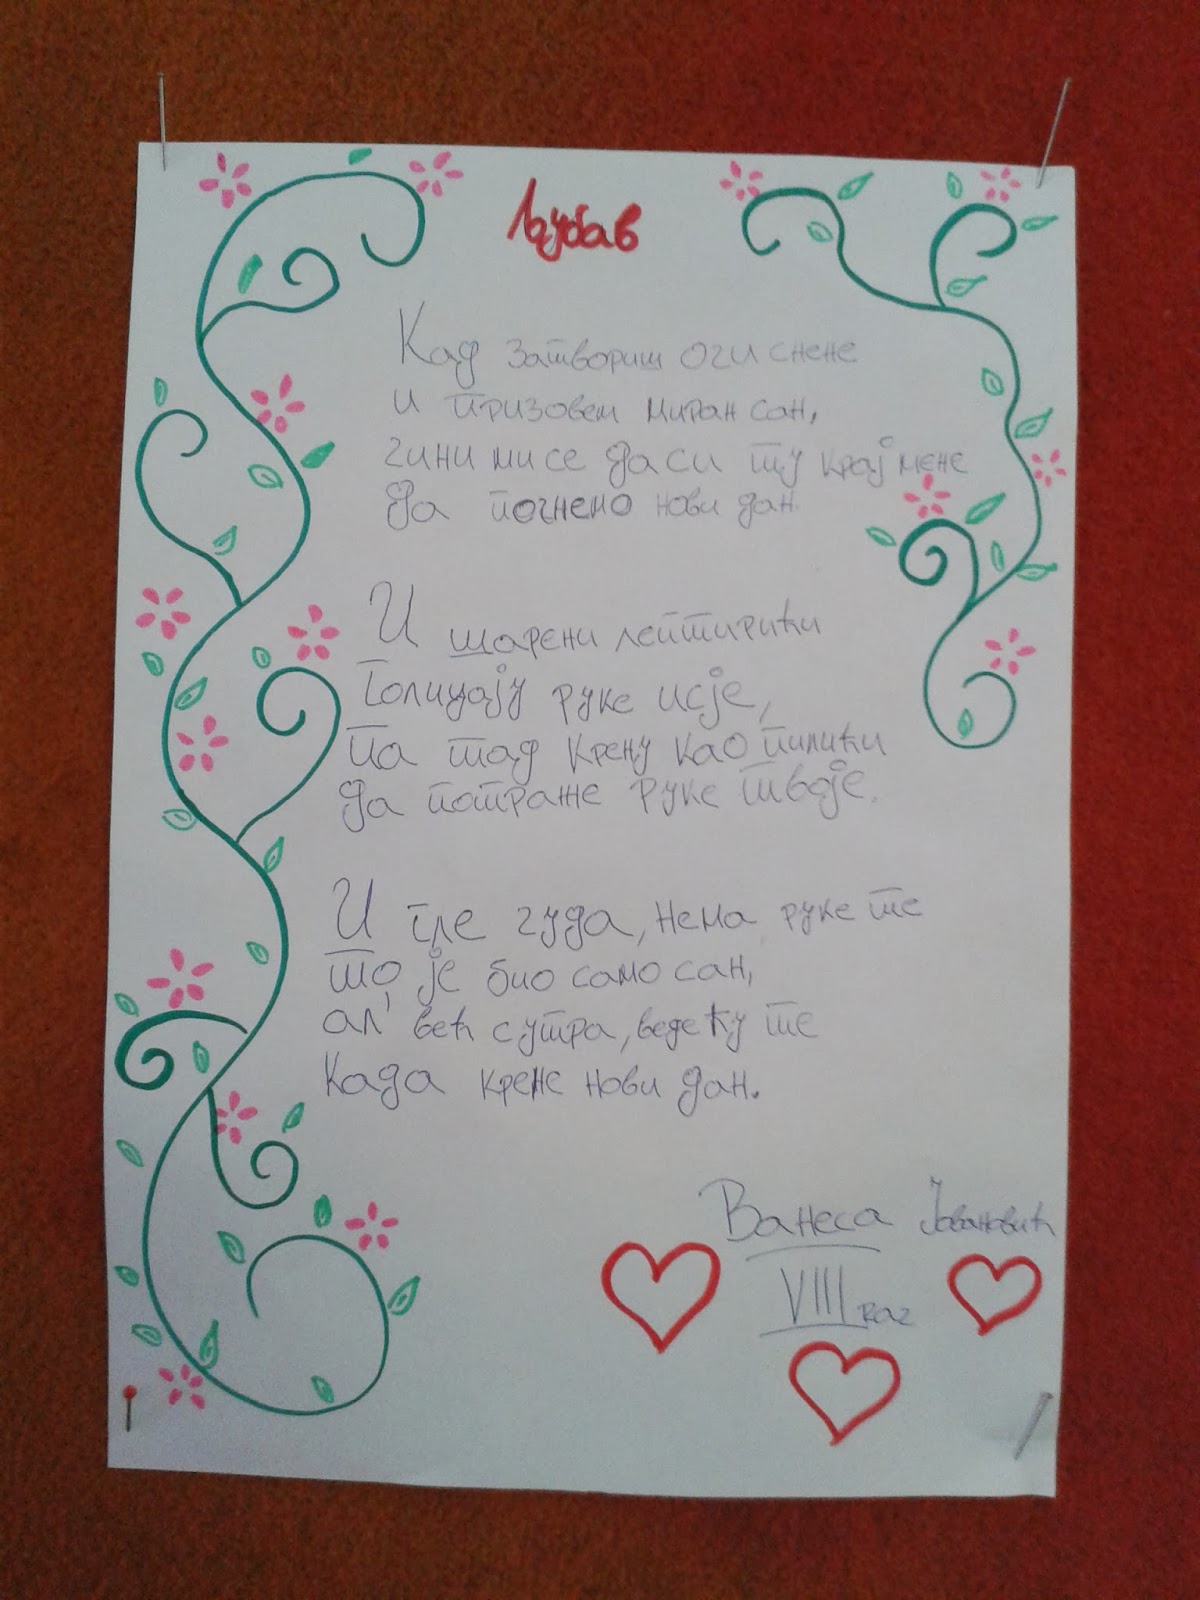 Љубав
Кад затвориш очи снене
и призовем миран сан,
чини ми се да си ту крај мене
да почнемо нови дан.
И шарени лептирићи
Голицају руке исје,
па тад крену као пилићи
да потраже руке твоје.
И гле чуда, нема руке те
то је био само сан,
ал' већ сутра, ведећу те
Када крене нови дан.
Ванеса Јовановић
VIII